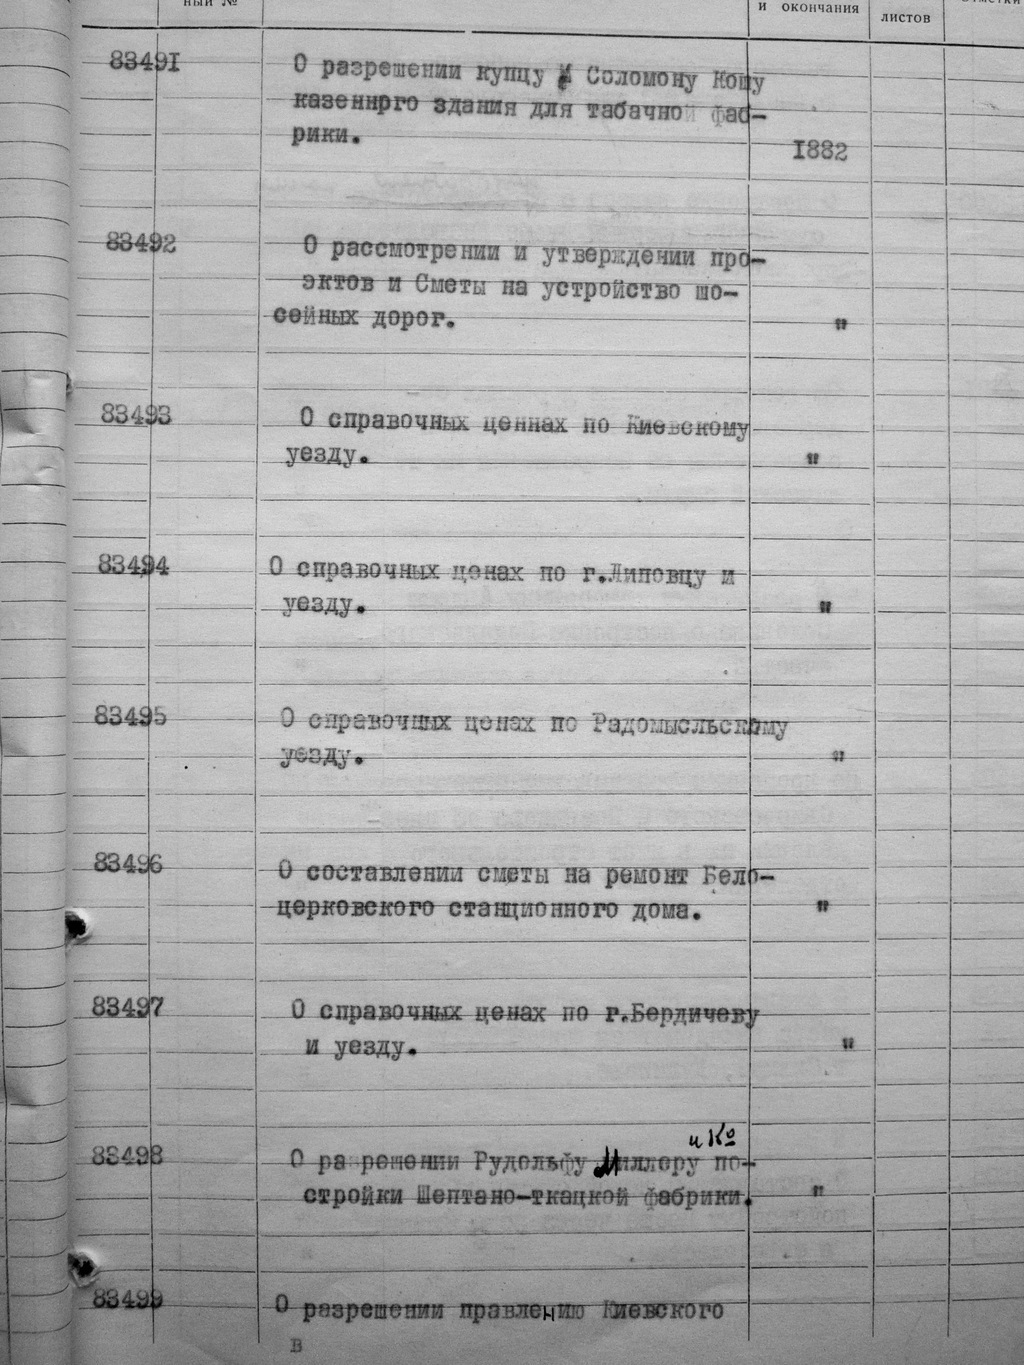 ный №
и окончания
листов
83491
О разрешении купцу Соломону Кошу
казеннрго здания для табачной фаб-
рики.
1882
83492
О рассмотрении и утверждении про-
эктов и Сметы на устройство шо-
сейных дорог.
"
83493
О справочных ценнах по Киевскому
уезду.
"
83494
О справочных ценах по г.Липовцу и
уезду.
"
83495
О справочных ценах по Радомысльскому
уезду.
"
83496
О составлении сметы на ремонт Бело-
церковского станционного дома.
"
83497
О справочных ценах по г.Бердичеву
и уезду.
"
и Ко
83498
О разрешении Рудольфу Миллеру по-
стройки Шептано-ткацкой фабрики.
"
83499
О разрешении правлению Киевского
в